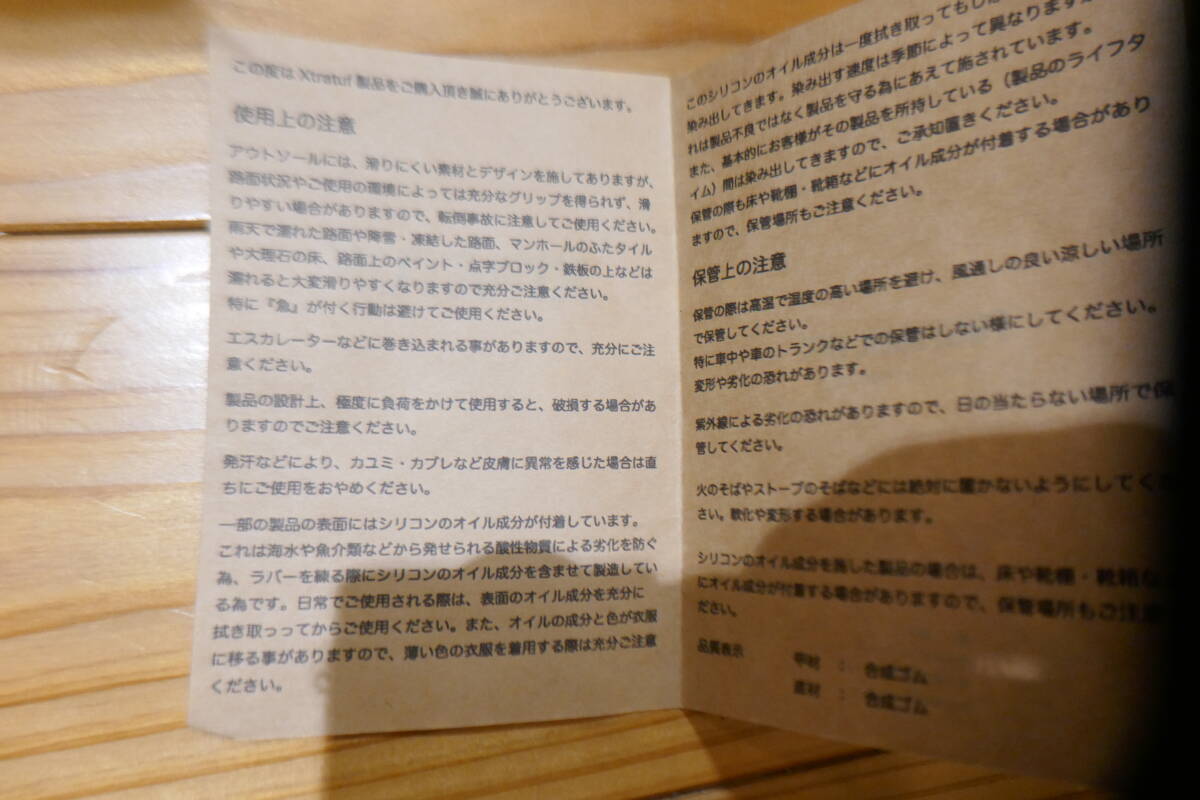 この度は Xtratuf 製品をご購入頂き誠にありがとうございます。
使用上の注意
アウトソールには、滑りにくい素材とデザインを施してありますが、
路面状況やご使用の環境によっては充分なグリップを得られず、滑
りやすい場合がありますので、転倒事故に注意してご使用ください。
雨天で濡れた路面や降雪・凍結した路面、マンホールのふたタイル
や大理石の床、路面上のペイント・点字ブロック・鉄板の上などは
濡れると大変滑りやすくなりますので充分ご注意ください。
特に『急』が付く行動は避けてご使用ください。
エスカレーターなどに巻き込まれる事がありますので、充分にご注
意ください。
製品の設計上、極度に負荷をかけて使用すると、破損する場合があ
りますのでご注意ください。
発汗などにより、カユミ・カブレなど皮膚に異常を感じた場合は直
ちにご使用をおやめください。
一部の製品の表面にはシリコンのオイル成分が付着しています。
これは海水や魚介類などから発せられる酸性物質による劣化を防ぐ
為、ラバーを練る際にシリコンのオイル成分を含ませて製造してい
る為です。日常でご使用される際は、表面のオイル成分を充分に
拭き取っってからご使用ください。また、オイルの成分と色が衣服
に移る事がありますので、薄い色の衣服を着用する際は充分ご注意
ください。
このシリコンのオイル成分は一度拭き取ってもしば
染み出してきます。染み出す速度は季節によって異なりますが
れは製品不良ではなく製品を守る為にあえて施されています。
また、基本的にお客様がその製品を所持している（製品のライフタ
イム）間は染み出してきますので、ご承知置きください。
保管の際も床や靴棚・靴箱などにオイル成分が付着する場合があり
ますので、保管場所もご注意ください。
保管上の注意
保管の際は高温で湿度の高い場所を避け、風通しの良い涼しい場所
で保管してください。
特に車中や車のトランクなどでの保管はしない様にしてください。
変形や劣化の恐れがあります。
紫外線による劣化の恐れがありますので、日の当たらない場所で保
管してください。
火のそばやストーブのそばなどには絶対に置かないようにしてくだ
さい。軟化や変形する場合があります。
シリコンのオイル成分を施した製品の場合は、床や靴棚・靴箱な
にオイル成分が付着する場合がありますので、保管場所もご注意
ださい。
品質表示 甲材 : 合成ゴム
底材 : 合成ゴム